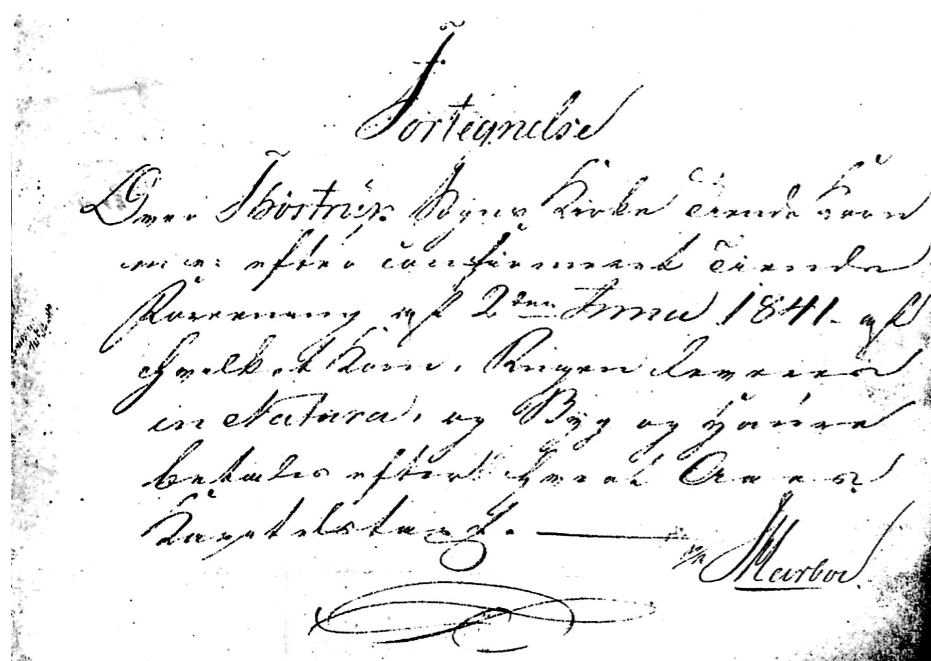 Fortegnelse
Over Thorstrup Sogns Kirke Tiende Korn
efter confirmeret Tiende
Foreening af 2den Junii 1841. af
hvilket Korn, Rugen leveres
in Natura, og Byg og Havre
betales efter hvert Aars
Kapitelstaxt.